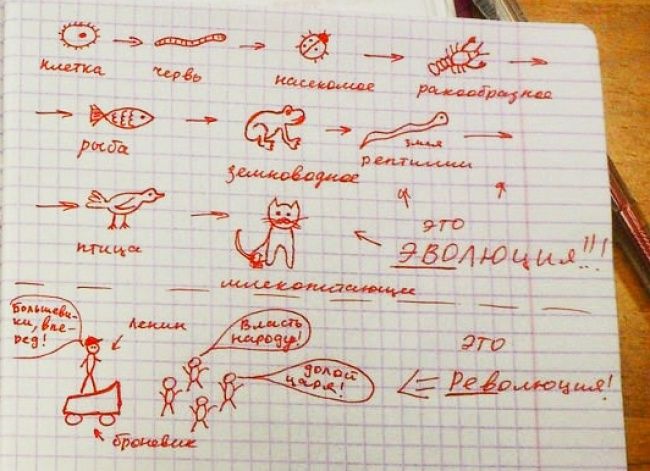 клетка червь насекомое ракообразное
рыба земноводное змея рептилии
птица млекопитающие
это
ЭВОЛЮЦИЯ!!!
Большеви-
ки, впе-
ред!
Ленин
Власть
народу!
долой
царя!
броневик
это
Революция!